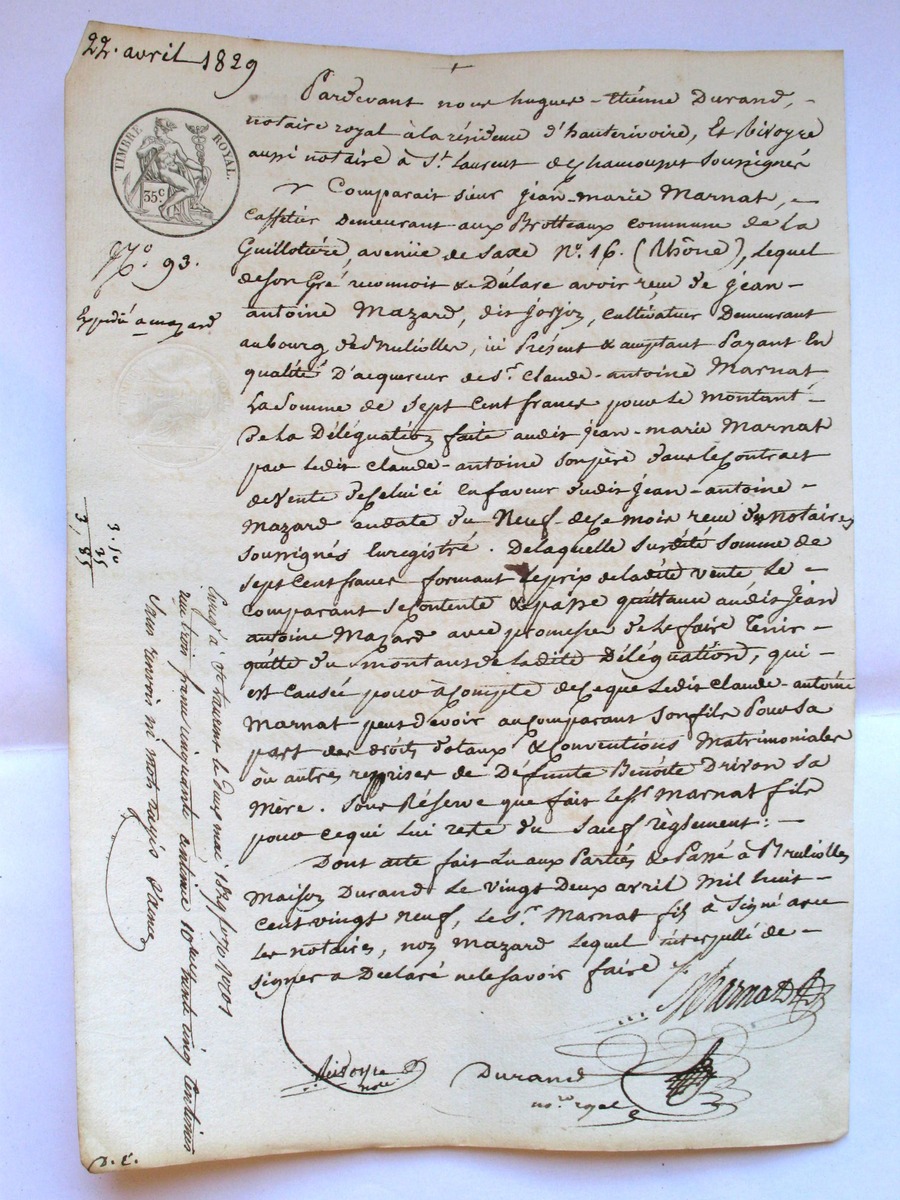 22. avril 1829
Pardevant nous hugues-étiénne Durand,-
notaire royal à la résidence d'hauterivoire, Et Rivoyre
aussi notaire à St. Laurent de Chamousset soussignés
Comparait sieur jean-marie Marnat,
Caffetier Demeurant aux Brotteaux commune de La
Guillotière, avenüe de Saxe No. 16. (Rhône), Lequel
de son Gré reconnoit & Déclare avoir reçu de jean-
antoine Mazard, dit, cultivateur Demeurant
au bourg de Brulioles, ici Présent & acceptant Payant En
qualité D'acquereur de Sr. Claude-antoine Marnat
La Somme de Sept Cent francs pour le montant-
de la Déléguation faite audit jean-marie Marnat
par Ledit Claude-antoine son père dans le Contract
de vente de Celui ci En faveur dudit jean-antoine-
Mazard En date du Neuf de Ce mois reçu Des Notaires
soussignés Enregistré. De laquelle Susdite Somme de
Sept Cent francs formant Le prix de la dite vente Le-
comparant Se Contente & passe quittance audit jean
antoine Mazard avec promesse de Le faire Tenir-
quitte du montant de Ladite Déléguation, qui-
est Causée pour àcompte de Ceque Ledit Claude-antoine
Marnat peut Devoir au Comparant Son fils Pour Sa
part des droits dotaux & Conventions Matrimoniales
où autres reprises de Défunte Benoite Drivon Sa
Mère. Sous Réserve que fait Le Sr. Marnat fils
pour ce qui Lui reste du Sauf règlement:-
Dont acte fait Lu aux Parties & Passé à Brulioles
Maison Durand Le vingt Deux avril Mil huit-
Cent vingt Neuf, Le Sr. Marnat fils à Signé avec
Les notaires, non Mazard Lequel interpellé de-
signer a Declaré ne le savoir faire
Marnat
Rivoyre
note
Durand
no.re royal
TIMBRE ROYAL.
35c
No. 93.
Expédié a mazard
3. 50
35
3, 85
Enregé à St Laurent le deux mai 1829
reçu trois francs cinquante centimes 10me trente cinq centimes
Sans renvois ni mots rayés
D. E.